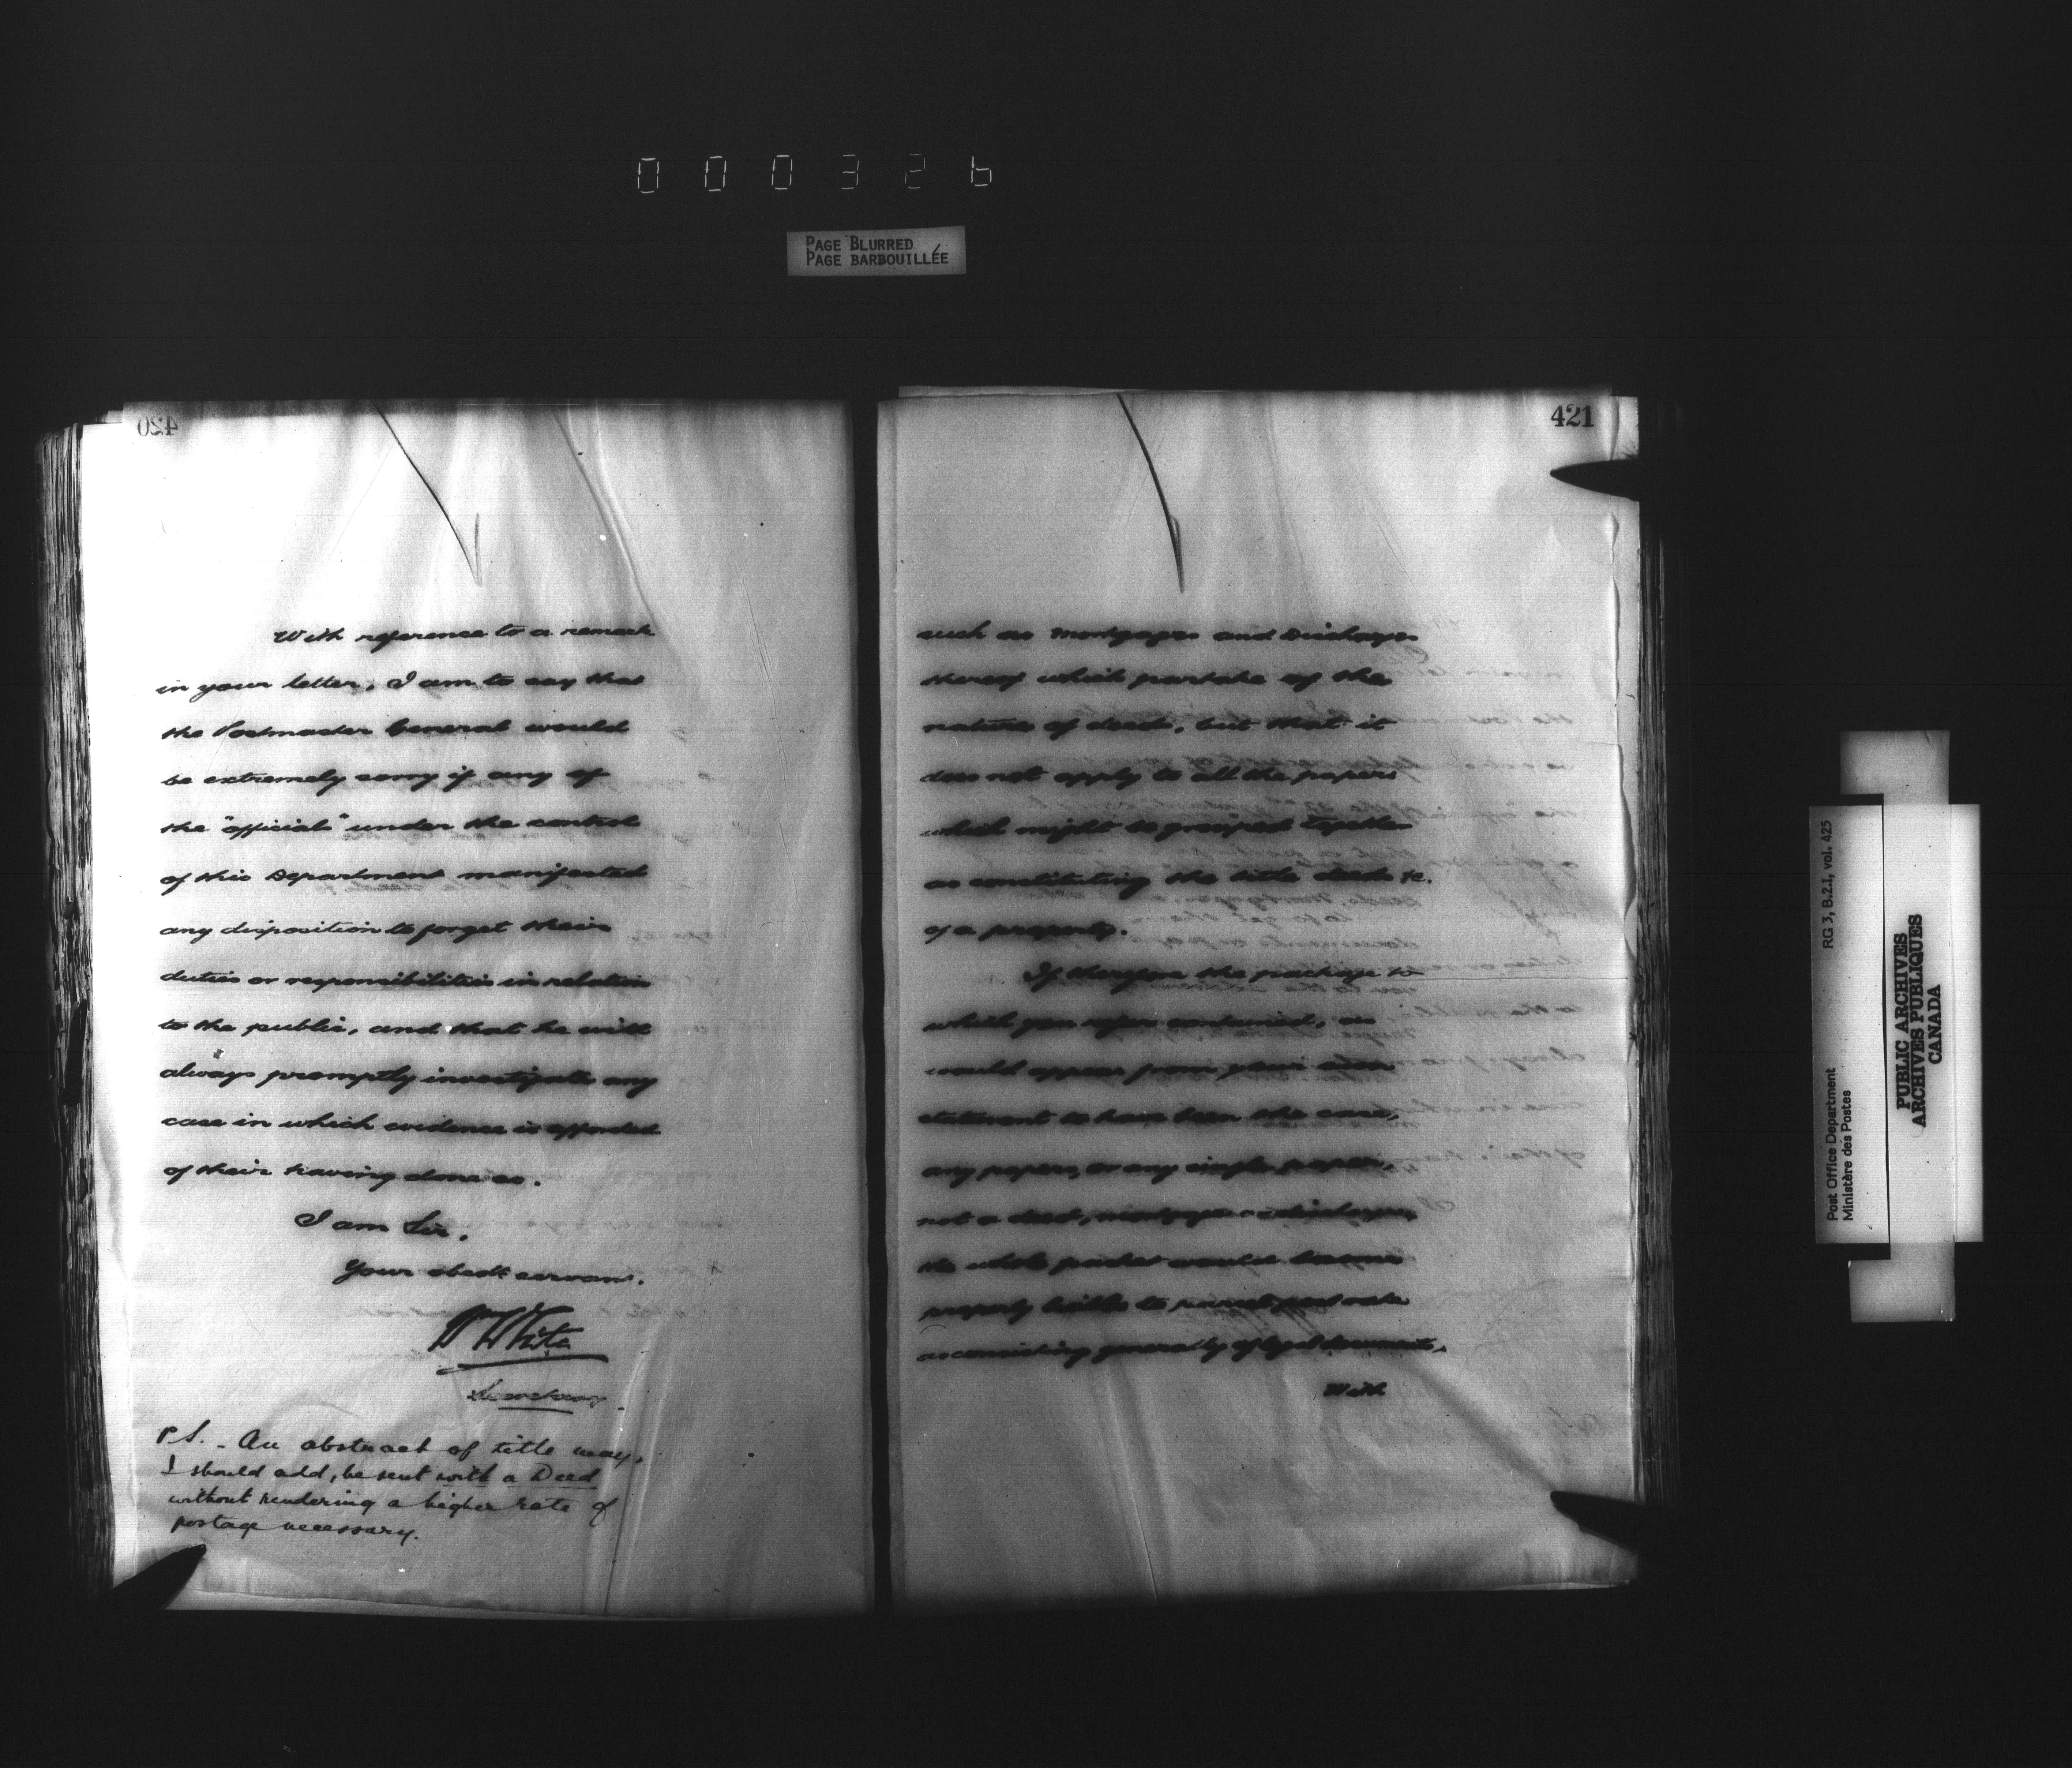 000326
PAGE BLURRED
PAGE BARBOUILLÉE
420
With reference to a remark
in your letter, I am to say that
the Postmaster General would
be extremely sorry if any of
the "official" under the control
of this Department manifested
any disposition to forget their
duties or responsibilities in relation
to the public, and that he will
always promptly investigate any
case in which evidence is afforded
of their having done so.
I am Sir,
Your obedt servant.
W White
Secretary.
P.S. - An abstract of title may,
I should add, be sent with a Deed
without rendering a higher rate of
postage necessary.
421
such as Mortgages and Discharges
thereof which partake of the
nature of deeds, but that it
does not apply to all the papers
which might be grouped together
as constituting the title deeds &c.
of a property.
If therefore the package to
which you refer contained, as
would appear from your own
statement to have been the case,
any papers, or any single paper,
not a deed, mortgage or discharge,
the whole packet would become
properly liable to parcel post rate
as consisting generally of legal documents.
With
RG 3, B.2.I, vol. 425
Post Office Department
Ministère des Postes
PUBLIC ARCHIVES
ARCHIVES PUBLIQUES
CANADA